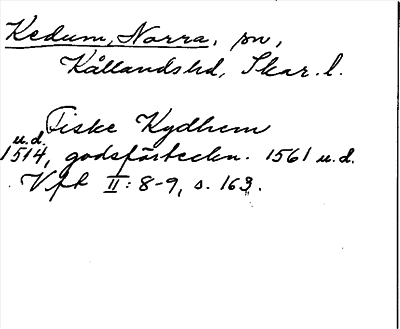 Kedum, Norra, sn,
Kållandshd, Skar. l.
Fiske Kydhem
u.d.
1514, godsförteckn. 1561 u.d.
Vft II: 8-9, s. 163.